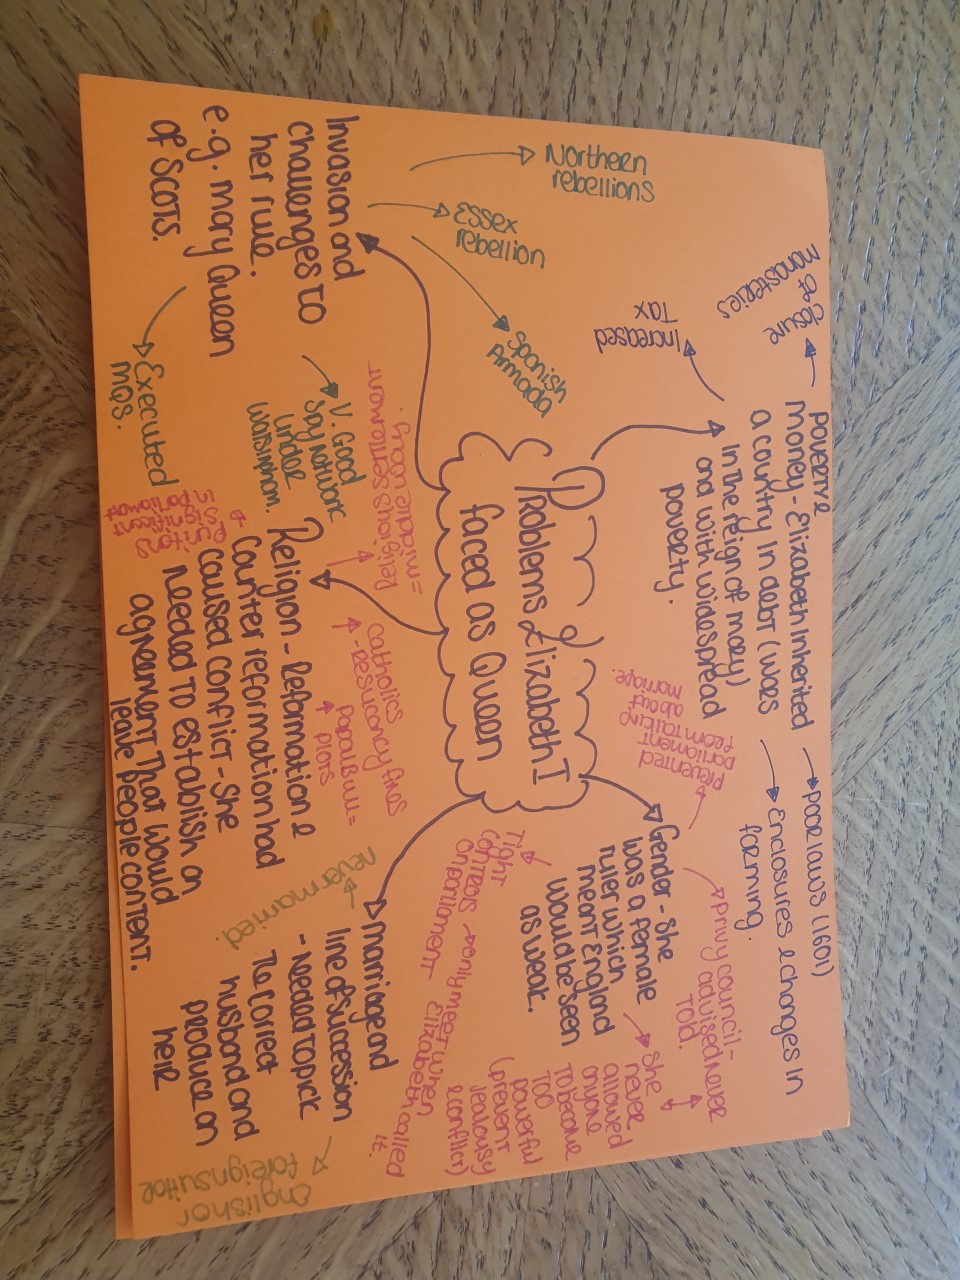 Problems Elizabeth I
faced as Queen
Poverty &
Money - Elizabeth inherited
a country in debt (wars
in the reign of mary)
and with widespread
poverty.
closure
of
monasteries
Increased
Tax
poor laws (1601)
enclosures & changes in
farming.
Gender - She
was a female
ruler which
meant England
would be seen
as weak.
prevented
parliament
from talking
about
marriage.
privy council -
advised never
told.
She
never
allowed
anyone
to become
too
powerful
(prevent
jealousy
& conflict)
Tight
controls
on parliament
only meet when
Elizabeth called
it.
Marriage and
line of succession
- needed to pick
the correct
husband and
produce an
heir
never married.
English or
foreign suitor
Religion - Reformation &
Counter reformation had
caused conflict - She
needed to establish an
agreement that would
leave people content.
Religious settlement
= middle way.
Catholics
- resucancy fines
papal bull =
plots
puritans
significant
Invasion and
challenges to
her rule.
e.g. Mary Queen
of Scots.
Northern
rebellions
Essex
rebellion
Spanish
Armada
V. Good
Spy network
under
walsingham.
Executed
MQS.